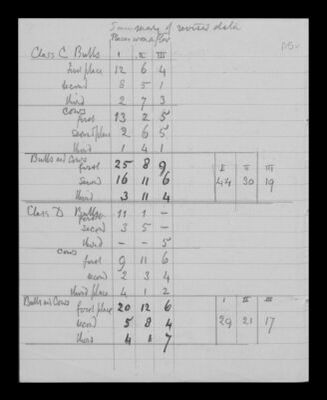 Summary of revised data
Places won after
Class C Bulls I II III
first place 12 6 4
second 8 5 1
third 2 7 3
Cows
first 13 2 5
second place 2 6 5
third 1 4 1
Bulls and Cows
first 25 8 9 I II III
second 16 11 6 44 30 19
third 3 11 4
Class D Bulls
first 11 1 –
second 3 5 –
third – – 5
Cows
first 9 11 6
second 2 3 4
third place 4 1 2
Bulls and Cows
first place 20 12 6 I II III
second 5 8 4 29 21 17
third 4 1 7